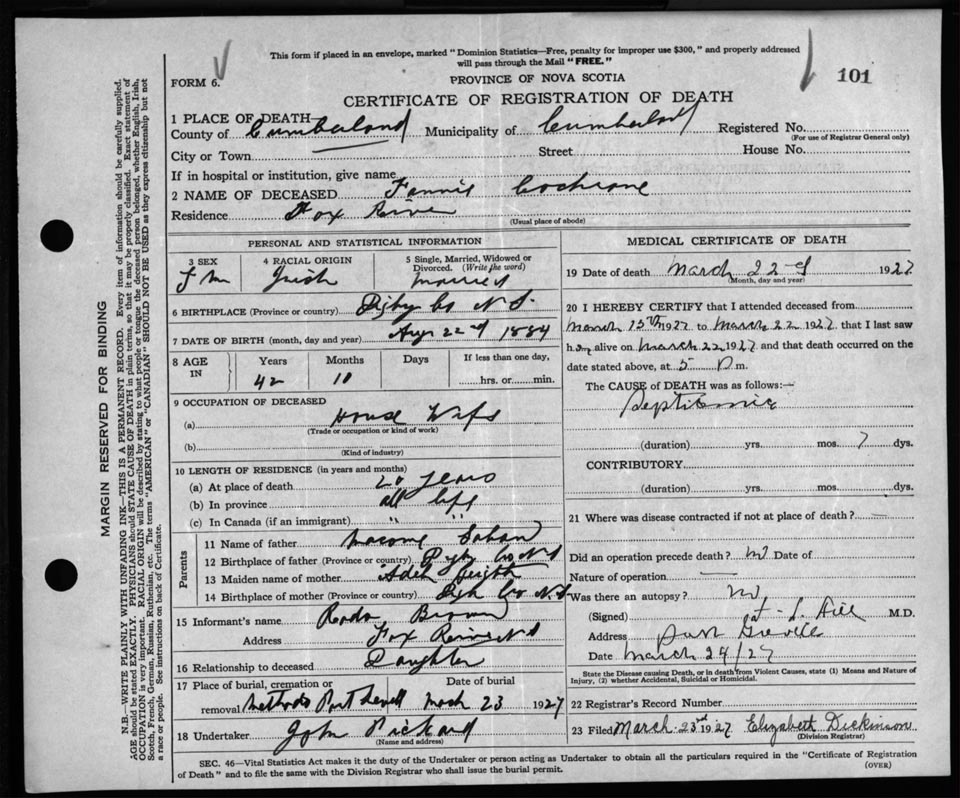 This form if placed in an envelope, marked "Dominion Statistics—Free, penalty for improper use $300," and properly addressed
will pass through the Mail "FREE."
FORM 6.
PROVINCE OF NOVA SCOTIA
101
CERTIFICATE OF REGISTRATION OF DEATH
1 PLACE OF DEATH
County of Cumberland Municipality of Cumberland Registered No.
(For use of Registrar General only)
City or Town Street House No.
If in hospital or institution, give name
2 NAME OF DECEASED Fannie Cochrane
Residence Fox River
(Usual place of abode)
PERSONAL AND STATISTICAL INFORMATION
3 SEX 4 RACIAL ORIGIN 5 Single, Married, Widowed or Divorced. (Write the word)
Fm Irish Married
6 BIRTHPLACE (Province or country) Digby Co N S.
7 DATE OF BIRTH (month, day and year) 22nd 1884
8 AGE IN Years Months Days If less than one day,
42 10 hrs. or min.
9 OCCUPATION OF DECEASED
(a) House Wife
(Trade or occupation or kind of work)
(b)
(Kind of industry)
10 LENGTH OF RESIDENCE (in years and months)
(a) At place of death 20 years
(b) In province all life
(c) In Canada (if an immigrant) " "
Parents
11 Name of father
12 Birthplace of father (Province or country) Digby Co N S
13 Maiden name of mother
14 Birthplace of mother (Province or country) Digby Co N S
15 Informant's name Brown
Address Fox River N S
16 Relationship to deceased Daughter
17 Place of burial, cremation or removal Date of burial
Port 23 1927
18 Undertaker John Pickard
(Name and address)
MEDICAL CERTIFICATE OF DEATH
19 Date of death March 22nd 1927
(Month, day and year)
20 I HEREBY CERTIFY that I attended deceased from
March 15th 1927 to March 22 1927 that I last saw
her alive on March 22 1927 and that death occurred on the
date stated above, at 5 P m.
The CAUSE of DEATH was as follows:—
Septicemia
(duration) yrs. mos. 7 dys.
CONTRIBUTORY
(duration) yrs. mos. dys.
21 Where was disease contracted if not at place of death? —
Did an operation precede death? no Date of
Nature of operation —
Was there an autopsy? no
(Signed) Hill M.D.
Address Port Greville
Date March 24/27
State the Disease causing Death, or in death from Violent Causes, state (1) Means and Nature of
Injury, (2) whether Accidental, Suicidal or Homicidal.
22 Registrar's Record Number
23 Filed March 23rd 1927 Elizabeth Dickinson
(Division Registrar)
SEC. 46—Vital Statistics Act makes it the duty of the Undertaker or person acting as Undertaker to obtain all the particulars required in the "Certificate of Registration
of Death" and to file the same with the Division Registrar who shall issue the burial permit.
(OVER)
MARGIN RESERVED FOR BINDING
N.B.—WRITE PLAINLY WITH UNFADING INK—THIS IS A PERMANENT RECORD. Every item of information should be carefully supplied.
AGE should be stated EXACTLY. PHYSICIANS should STATE CAUSE OF DEATH in plain terms, so that it may be properly classified. Exact statement of
OCCUPATION is very important. RACIAL ORIGIN will be described by stating to what people or tongue the deceased person belonged, whether English, Irish,
Scotch, French, German, Russian, Ruthenian, etc. The terms "AMERICAN" or "CANADIAN" SHOULD NOT BE USED as they express citizenship but not
a race or people. See instructions on back of Certificate.